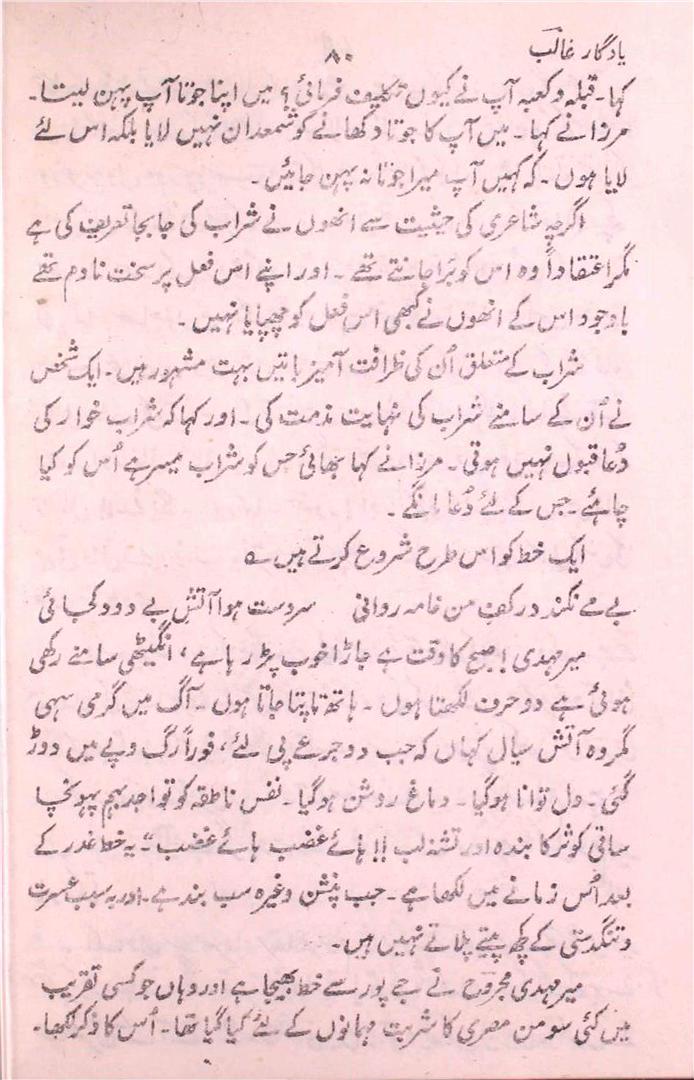 یادگار غالب
۸۰
کہا۔ قبلہ و کعبہ آپ نے کیوں تکلیف فرمائی؟ میں اپنا جوتا آپ پہن لیتا۔
مرزا نے کہا۔ میں آپ کا جوتا دکھانے کو شمعدان نہیں لایا بلکہ اس لئے
لایا ہوں۔ کہ کہیں آپ میرا جوتا نہ پہن جائیں۔
اگرچہ شاعری کی حیثیت سے انھوں نے شراب کی جابجا تعریف کی ہے
مگر اعتقاداً وہ اس کو بُرا جانتے تھے۔ اور اپنے اس فعل پر سخت نادم تھے
باوجود اس کے انھوں نے کبھی اس فعل کو چھپایا نہیں۔
شراب کے متعلق اُن کی ظرافت آمیز باتیں بہت مشہور ہیں۔ ایک شخص
نے اُن کے سامنے شراب کی نہایت مذمت کی۔ اور کہا کہ شراب خوار کی
دُعا قبول نہیں ہوتی۔ مرزا نے کہا بھائی جس کو شراب میسر ہے اُس کو کیا
چاہئے۔ جس کے لئے دُعا مانگے۔
ایک خط کو اس طرح شروع کرتے ہیں ؎
بے مے نکند در کف من خامہ روانی سردست ہوا آتش بے دود کجائی
میر مہدی! صبح کا وقت ہے جاڑا خوب پڑ رہا ہے، انگیٹھی سامنے رکھی
ہوئی ہے دو حرف لکھتا ہوں۔ ہاتھ تاپتا جاتا ہوں۔ آگ میں گرمی سہی
مگر وہ آتش سیال کہاں کہ جب دو جرعے پی لئے، فوراً رگ و پے میں دوڑ
گئی۔ دل توانا ہوگیا۔ دماغ روشن ہوگیا۔ نفس ناطقہ کو تواجد بہم پہونچا
ساقی کوثر کا بندہ اور تشنہ لب!! ہائے غضب ہائے غضب"۔ یہ خط غدر کے
بعد اُس زمانے میں لکھا ہے۔ جب پنشن وغیرہ سب بند ہے۔ اور بہ سبب عسرت
و تنگدستی کے کچھ پیتے پلاتے نہیں ہیں۔
میر مہدی مجروح نے جے پور سے خط بھیجا ہے اور وہاں جو کسی تقریب
میں کئی سو من مصری کا شربت مہمانوں کے لئے کیا گیا تھا۔ اُس کا ذکر لکھا۔